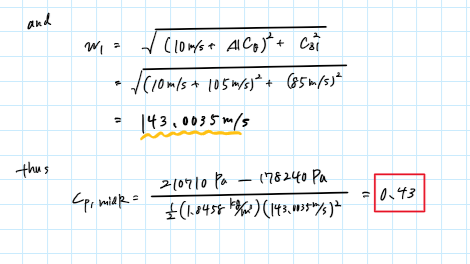 and
w₁ = √((10m/s + ΔCθ)² + Cz1²)
= √((10m/s + 105m/s)² + (85m/s)²)
= 143.0035m/s
thus
Cp, midR = (210710 Pa − 178240 Pa) / (½(1.8458 kg/m³)(143.0035m/s)²) = 0.43